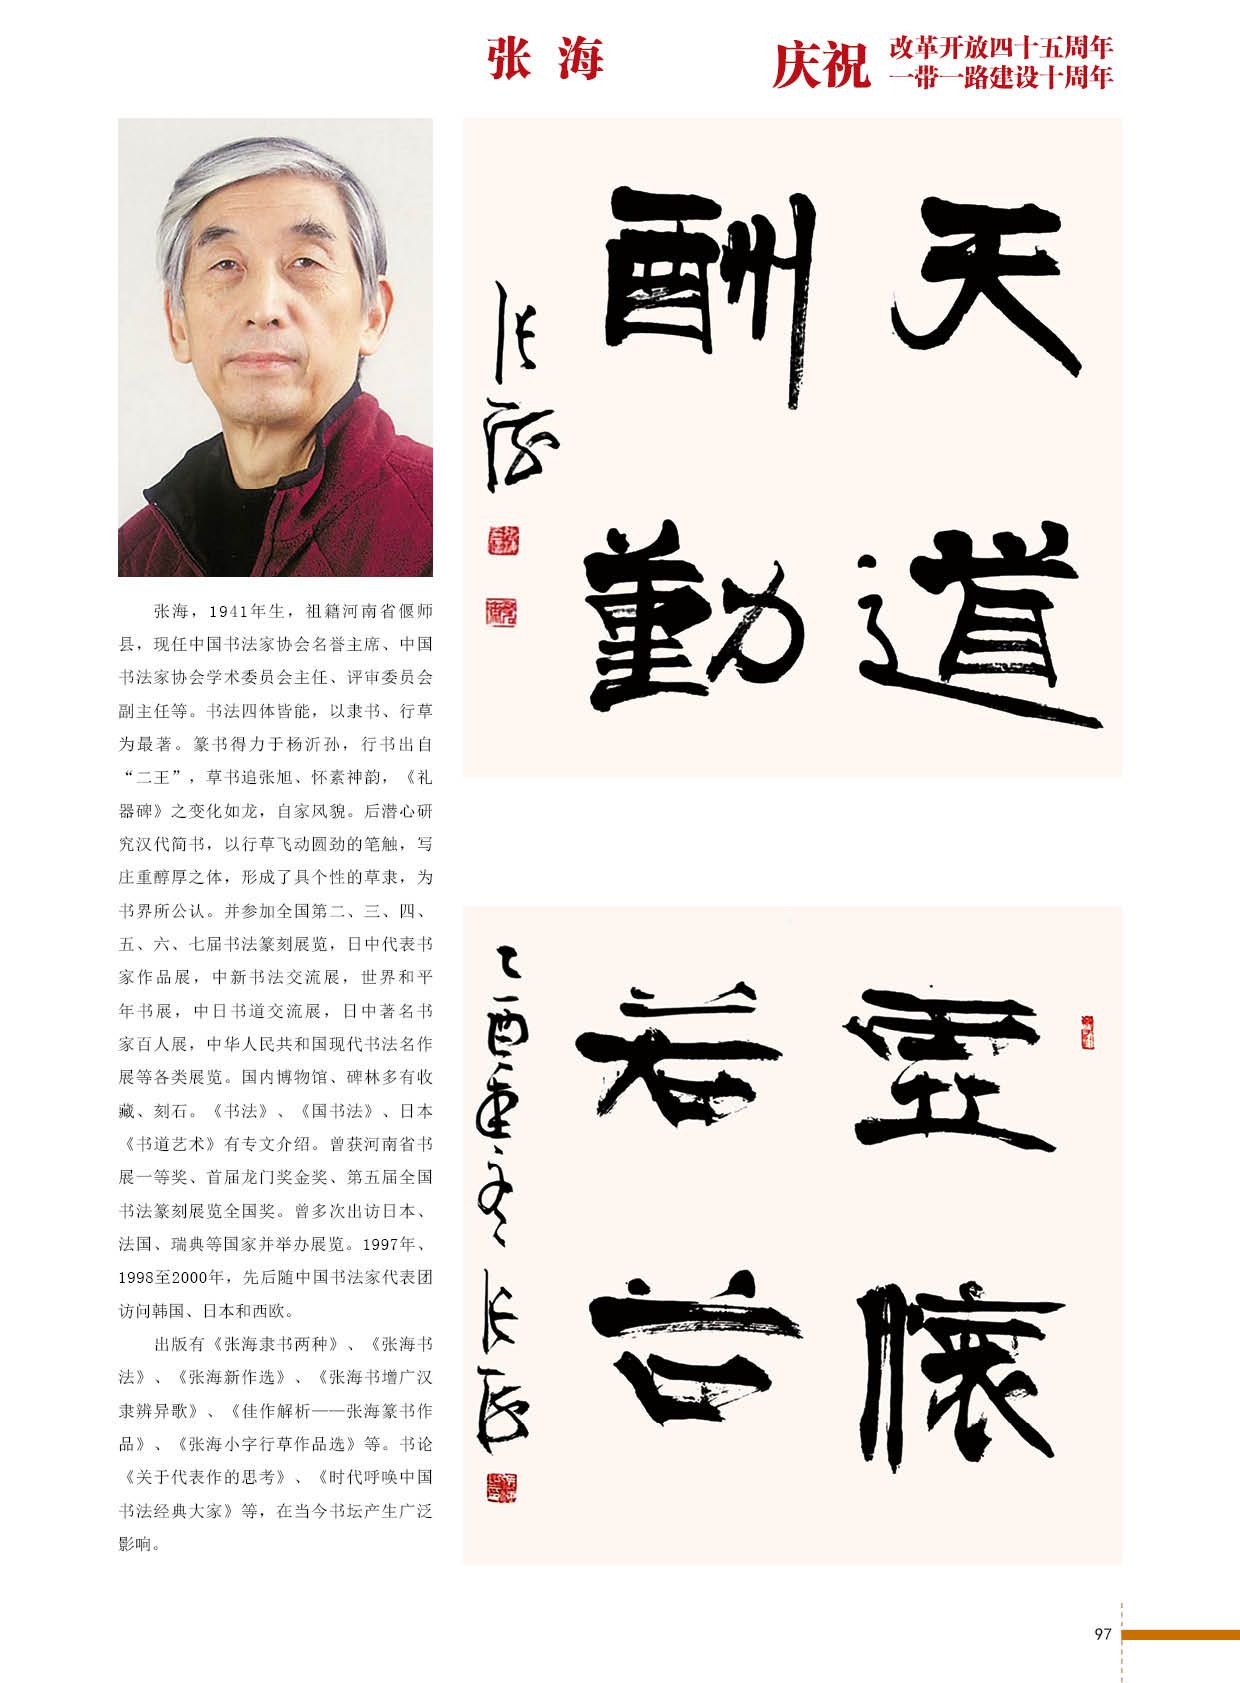 张 海
庆祝
改革开放四十五周年
一带一路建设十周年
张海，1941年生，祖籍河南省偃师
县，现任中国书法家协会名誉主席、中国
书法家协会学术委员会主任、评审委员会
副主任等。书法四体皆能，以隶书、行草
为最著。篆书得力于杨沂孙，行书出自
“二王”，草书追张旭、怀素神韵，《礼
器碑》之变化如龙，自家风貌。后潜心研
究汉代简书，以行草飞动圆劲的笔触，写
庄重醇厚之体，形成了具个性的草隶，为
书界所公认。并参加全国第二、三、四、
五、六、七届书法篆刻展览，日中代表书
家作品展，中新书法交流展，世界和平
年书展，中日书道交流展，日中著名书
家百人展，中华人民共和国现代书法名作
展等各类展览。国内博物馆、碑林多有收
藏、刻石。《书法》、《国书法》、日本
《书道艺术》有专文介绍。曾获河南省书
展一等奖、首届龙门奖金奖、第五届全国
书法篆刻展览全国奖。曾多次出访日本、
法国、瑞典等国家并举办展览。1997年、
1998至2000年，先后随中国书法家代表团
访问韩国、日本和西欧。
出版有《张海隶书两种》、《张海书
法》、《张海新作选》、《张海书增广汉
隶辨异歌》、《佳作解析——张海篆书作
品》、《张海小字行草作品选》等。书论
《关于代表作的思考》、《时代呼唤中国
书法经典大家》等，在当今书坛产生广泛
影响。
天道
酬勤
张海
灵懐
若谷
乙酉重冬 张海
97